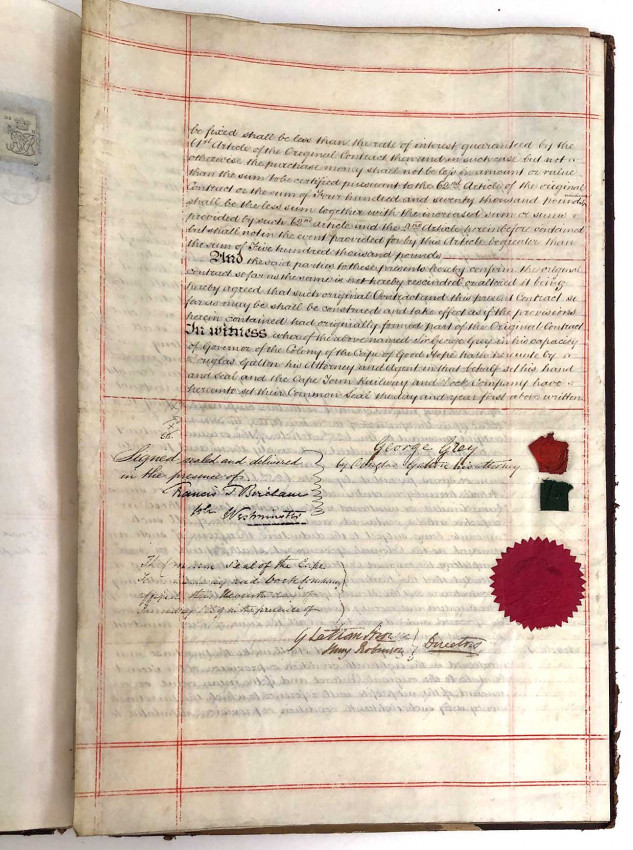 be fixed shall be less than the rate of interest guaranteed by the
61st Article of the Original Contract then and in such case but not
otherwise the purchase money shall not be less in amount or value
than the sum to be certified pursuant to the 62nd Article of the original
Contract or the sum of Four hundred and seventy thousand pounds
shall be the less sum together with the increased sum or sums
provided by such 62nd article and the 2nd Article hereinbefore contained
but shall not in the event provided for by this Article be greater than
the sum of Five hundred thousand pounds
And the said parties to these presents hereby confirm the original
contract so far as the same is not hereby rescinded or altered it being
hereby agreed that such original Contract and this present Contract so
far as may be shall be construed and take effect as if the provisions
herein contained had originally formed part of the Original Contract
In witness whereof the above named Sir George Grey in his capacity
of Governor of the Colony of the Cape of Good Hope hath hereunto by
Douglas Galton his Attorney and Agent in that behalf set his hand
and Seal and the Cape Town Railway and Dock Company have
hereunto set their Common Seal the day and year first above written
George Grey
by Douglas Galton his attorney
Signed sealed and delivered
in the presence of
Francis T Bircham
Westminster
The Common Seal of the Cape
Town Railway and Dock Company
affixed this day of
in the presence of
Henry Robinson
Directors